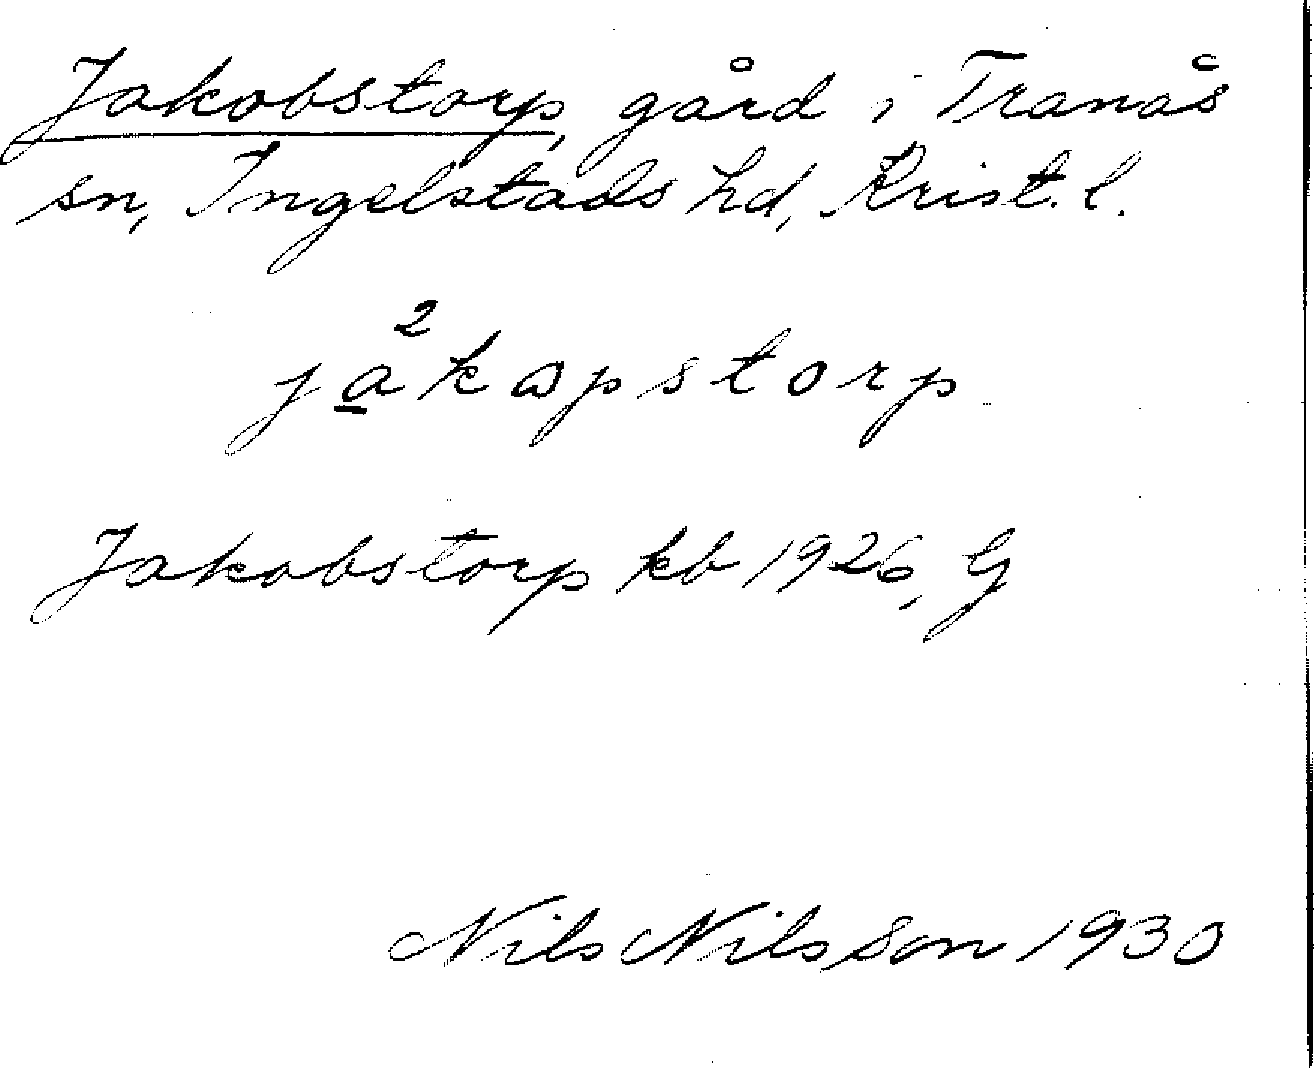 Jakobstorp, gård i Tranås
sn, Ingelstads hd, Krist. l.
ja̲²kɷpstorp
Jakobstorp kb 1926, G
Nils Nilsson 1930